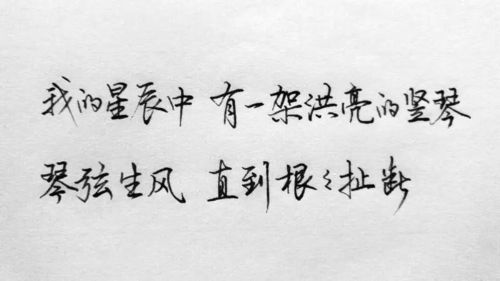 我的星辰中 有一架洪亮的竖琴
琴弦生风 直到根々扯断